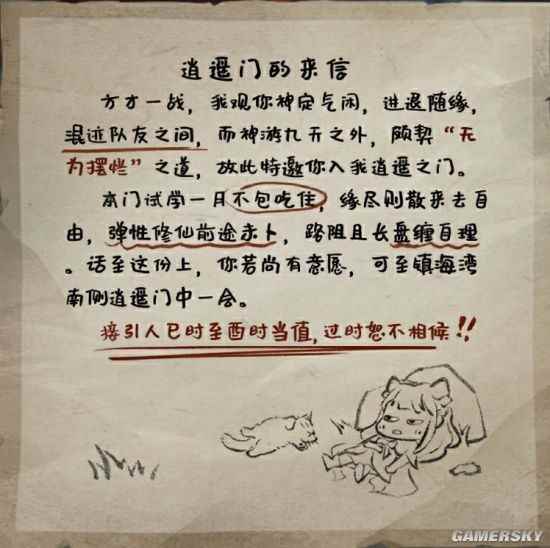 逍遥门的来信
方才一战，我观你神定气闲，进退随缘，
混迹队友之间，而神游九天之外，颇契“无
为摆烂”之道，故此特邀你入我逍遥之门。
本门试学一月不包吃住，缘尽则散来去自
由，弹性修仙前途未卜，路阻且长盘缠自理
。话至这份上，你若尚有意愿，可至镇海湾
南侧逍遥门中一会。
接引人巳时至酉时当值，过时恕不相候！！
GAMERSKY